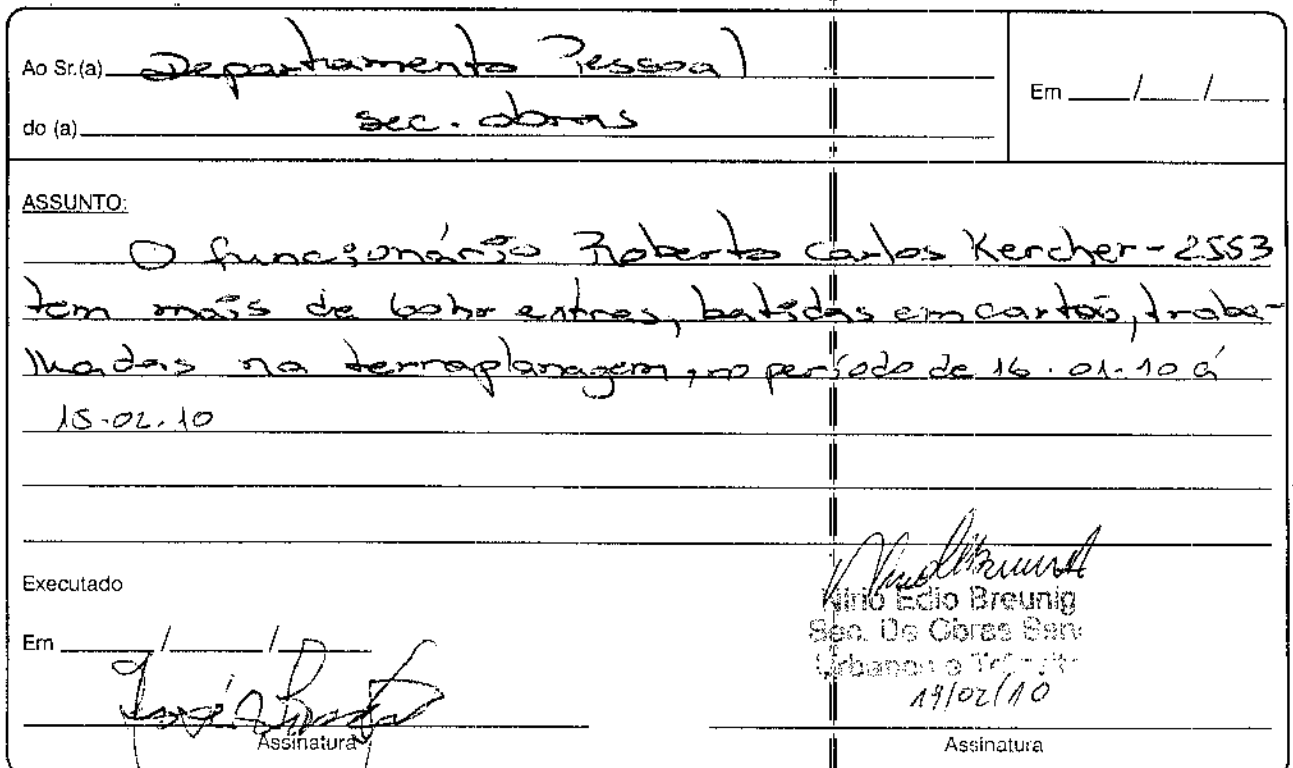 Ao Sr.(a) Departamento Pessoal
do (a) Sec. obras
Em / /
ASSUNTO:
O funcionário Roberto Carlos Kercher - 2553
tem mais de 60hr extras, batidas em cartão, traba-
lhadas na terraplanagem, no período de 16.01.10 á
15.02.10
Executado
Em / /
Assinatura
Nirio Edio Breunig
Sec. De Obras
Urbanos e
19/02/10
Assinatura